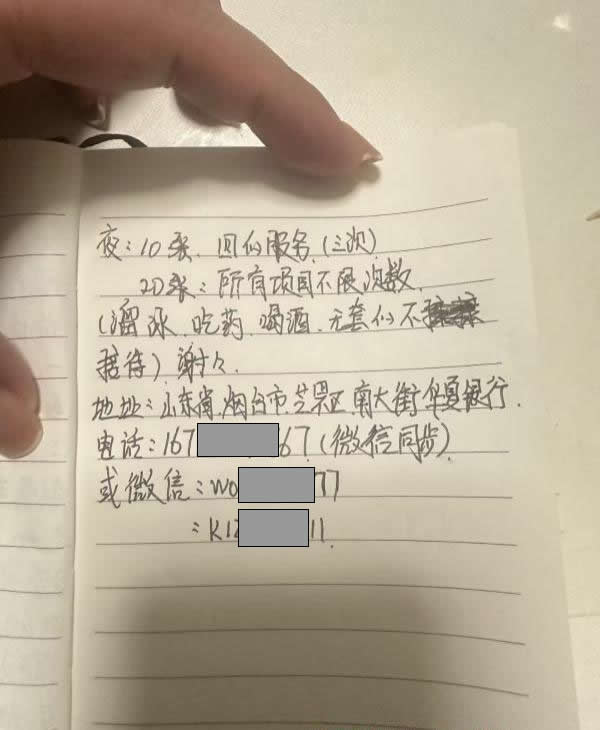 夜:10张.回们服务.(三次)
20张:所有项目不限次数.
(溜冰.吃药.喝酒.无套们不
接待)谢谢々.
地址:山东省.烟台市.芝罘区.南大街华夏银行.
电话:167 67.(微信同步)
或微信:wo 77
:K12 11.